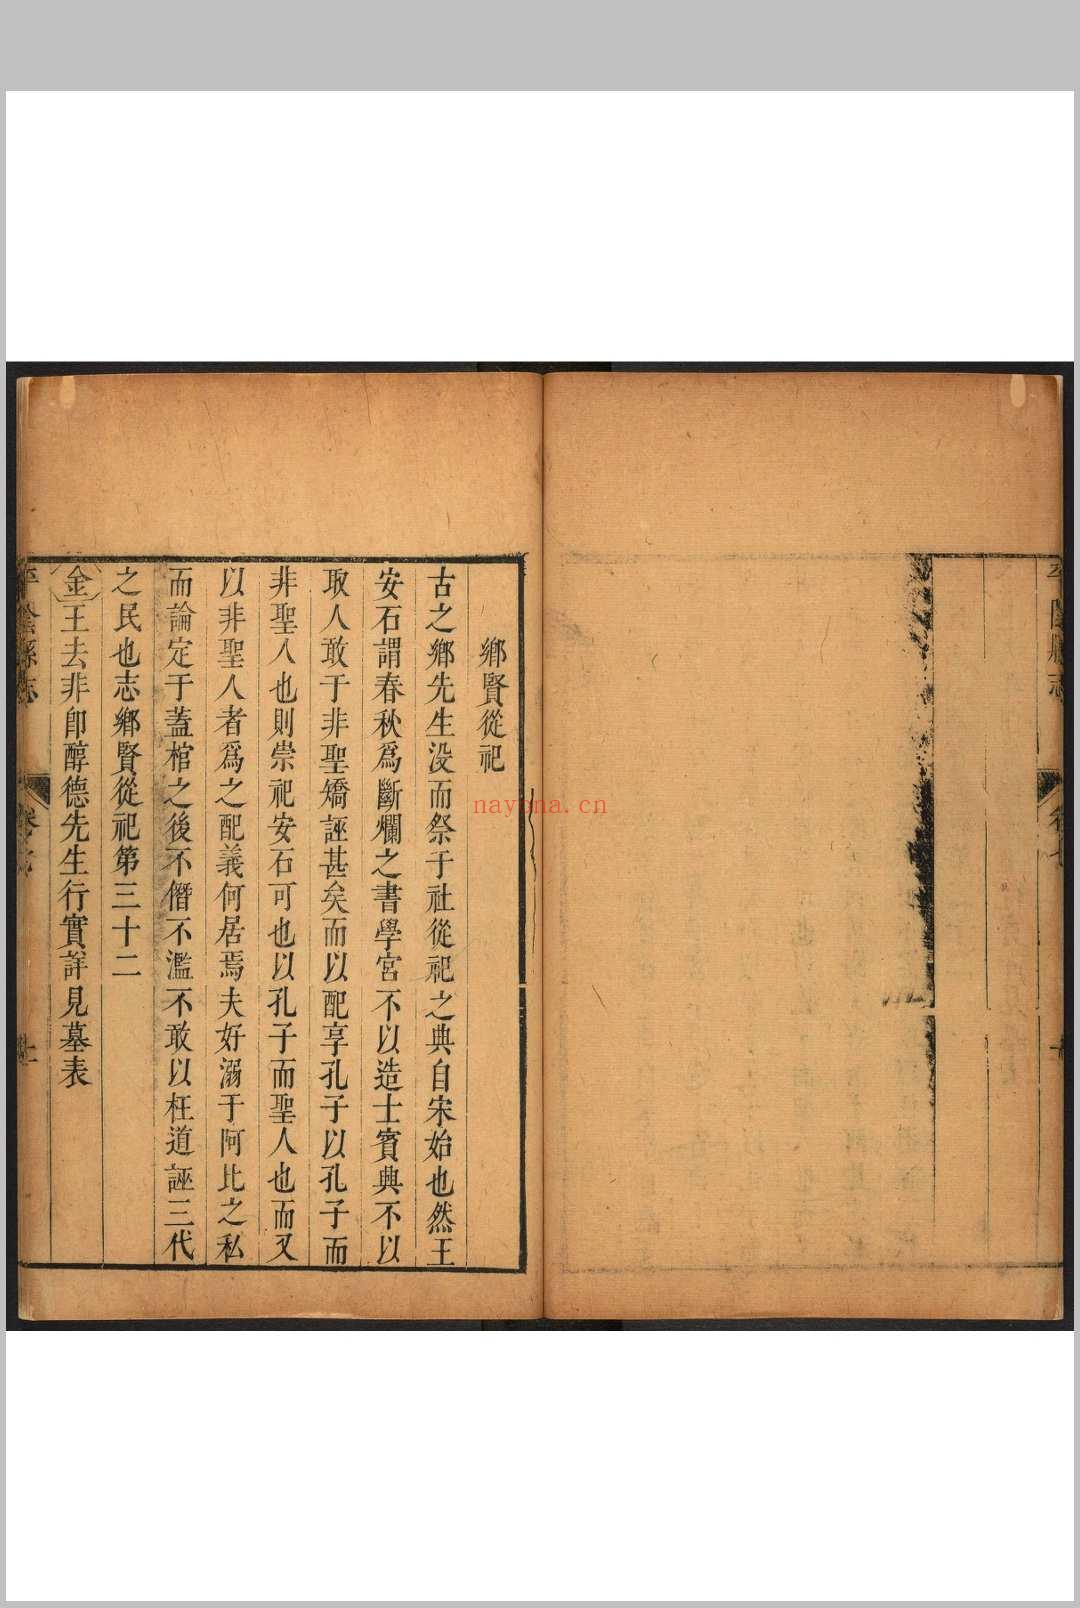 鄉賢從祀
古之鄉先生没而祭于社從祀之典自宋始也然王
安石謂春秋爲斷爛之書學宮不以造士賓興不以
取人敢于非聖矯誣甚矣而以配享孔子以孔子而
非聖人也則崇祀安石可也以孔子而聖人也而又
以非聖人者爲之配義何居焉夫好溺于阿比之私
而論定于蓋棺之後不僭不濫不敢以枉道誣三代
之民也志鄉賢從祀第三十二
金王去非卽醇德先生行實詳見墓表
平陰縣志
卷七
nayona.cn